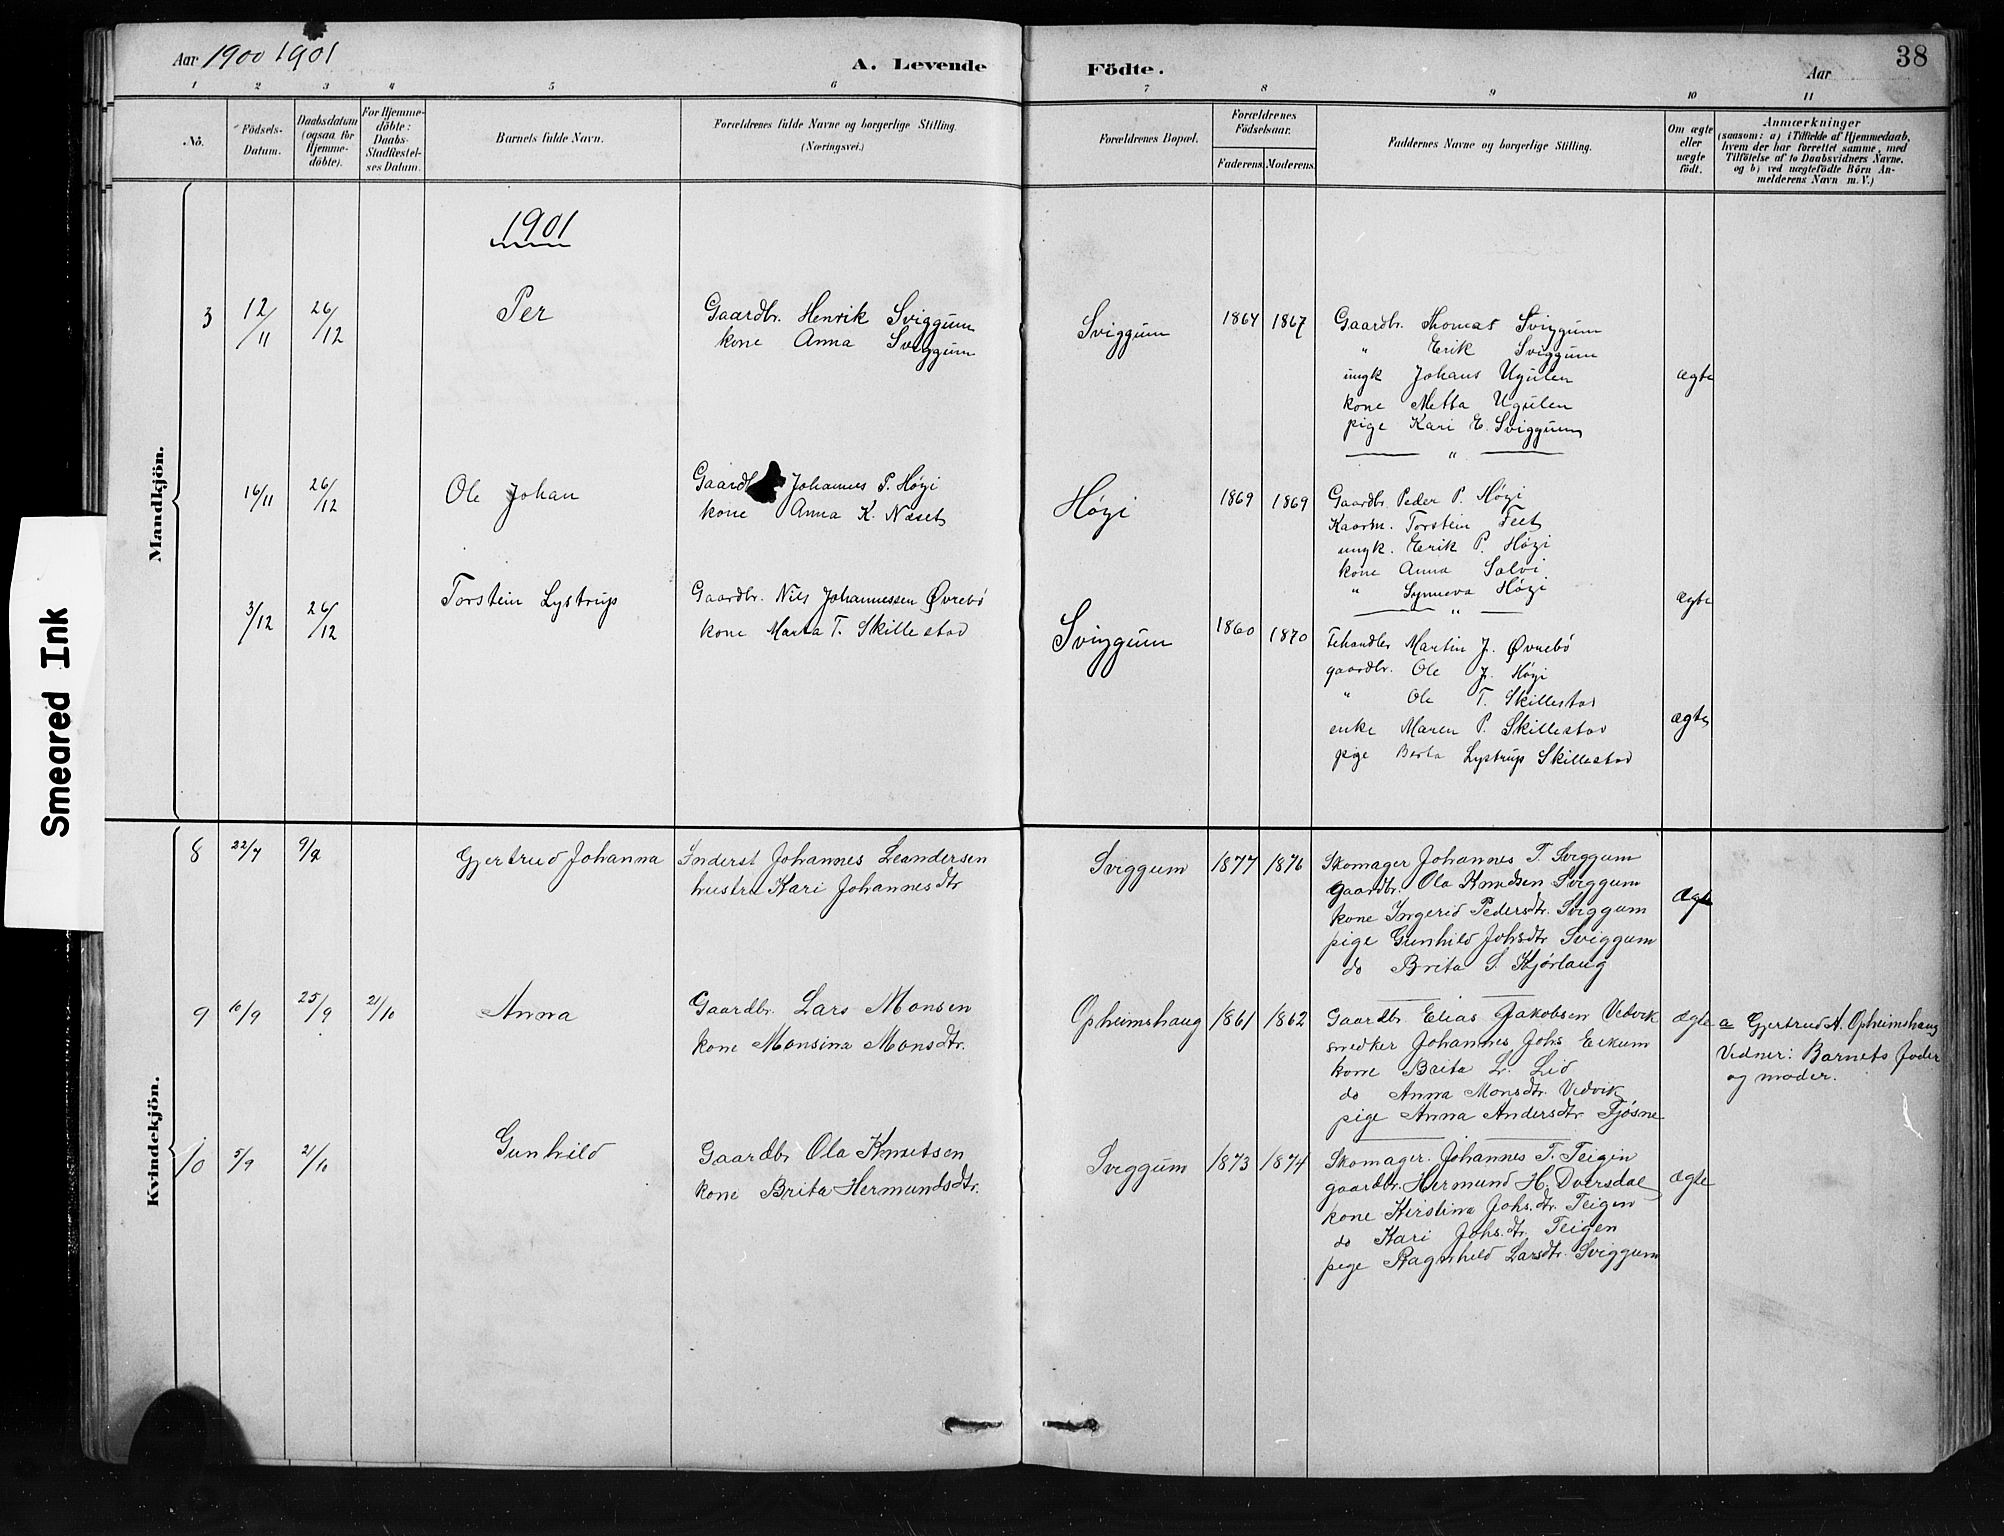 Aar 1900 1901
A. Levende Födte.
Aar
38
1 2 3 4 5 6 7 8 9 10 11
No.
Födsels-
Datum.
Daabsdatum
(ogsaa for
Hjemme-
döbte).
For Hjemme-
döbte:
Daabs-
Stadfæstel-
ses Datum.
Barnets fulde Navn.
Forældrenes fulde Navne og borgerlige Stilling.
(Næringsvei.)
Forældrenes Bopæl.
Forældrenes
Födselsaar.
Faderens. Moderens.
Faddernes Navne og borgerlige Stilling.
Om ægte
eller
uægte
født.
Anmærkninger
(saasom: a) i Tilfælde af Hjemmedaab,
hvem der har forrettet samme, med
Tilföielse af to Daabsvidners Navne,
og b) ved uægtefödte Börn An-
melderens Navn m. V.)
Smeared Ink
Mandkjön.
1901
3 12/11 26/12 Per
Gaardbr. Henrik Sviggum
kone Anna Sviggum
Sviggum 1864 1867
Gaardbr. Thomas Sviggum
" Erik Sviggum
ungk Johans Ugulen
kone Metta Ugulen
pige Kari E. Sviggum
ægte
"
16/11 26/12 Ole Johan
Gaardb Johannes P. Høgi
kone Anna K. Næset
Høgi 1869 1869
Gaardbr. Peder P. Høgi
Kaarm. Torstein Feet
ungk. Erik P. Høgi
kone Anna Solvi
" Synneva Høgi
ægte
"
3/12 26/12 Torstein Lystrup
Gaardbr. Nils Johannessen Øvrebø
kone Marta T. Skillestad
Sviggum 1860 1870
Martin J. Øvrebø
gaardbr. Ole J. Høgi
" Ole T. Skillestad
enke Maren P. Skillestad
pige Berta Lystrup Skillestad
ægte
Kvindekjön.
8 22/7 9/9 Gjertrud Johanna
Inderst Johannes Leandersen
hustru Kari Johannesdtr
Sviggum 1877 1876
Skomager Johannes T. Sviggum
Gaardbr. Ola Knudsen Sviggum
kone Ingerid Pedersdtr. Sviggum
pige Gunhild Johsdtr Sviggum
do Brita S. Kjørlaug
ægte
9 10/9 25/9 21/10 Anna
Gaardbr. Lars Monsen
kone Monsina Monsdtr.
Opheimshaug 1861 1862
Gaardbr Elias Jakobsen Vedvik
snedker Johannes Johs Eikum
kone Brita L. Lid
do Anna Monsdtr. Vedvik
pige Anna Andersdtr Fjøsne
ægte
a Gjertrud A. Opheimshaug
Vidner: Barnets fader
og moder.
10 5/9 21/10 Gunhild
Gaardbr Ola Knutsen
kone Brita Hermundsdtr.
Sviggum 1873 1874
Skomager. Johannes T. Teigin
gaardbr. Hermund H. Dversdal
kone Kirstina Johs.dtr. Teigen
do Kari Johs.dtr. Teigen
pige Ragnhild Larsdtr. Sviggum
ægte